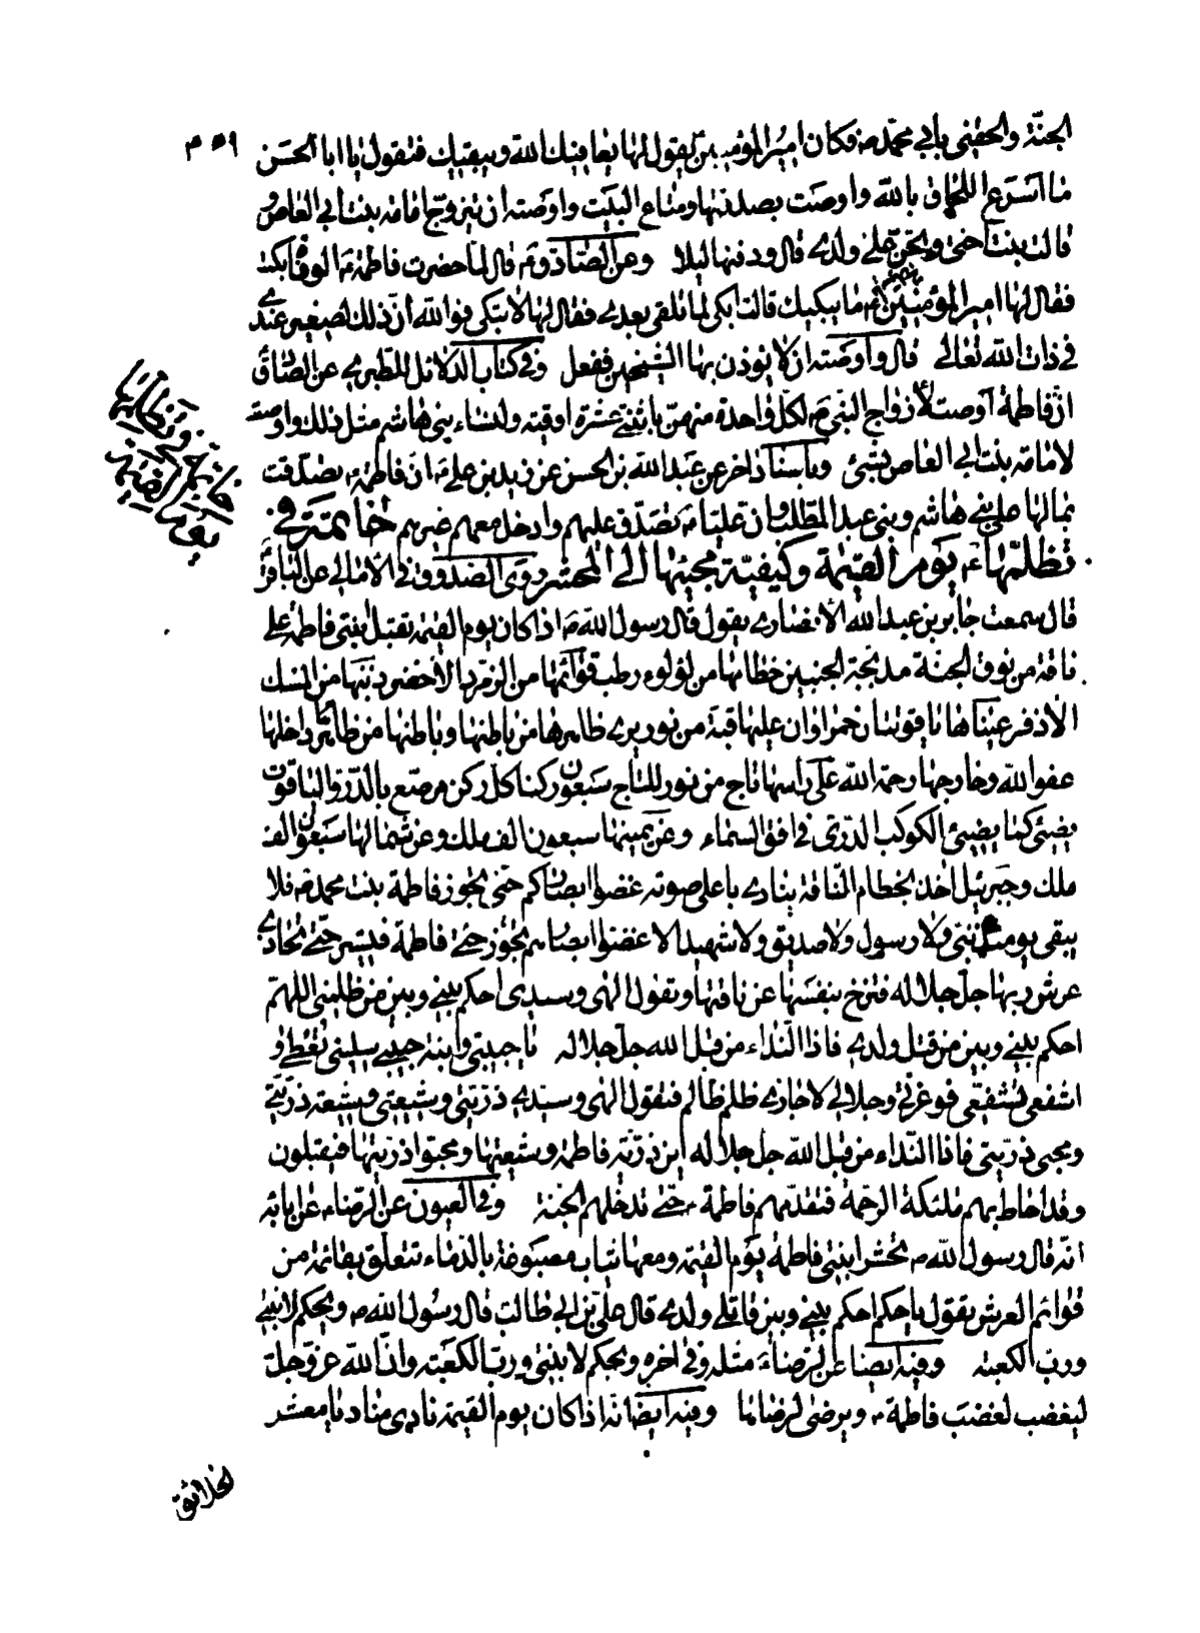 ٤٥٩
الجنّة والحقنى بابى محمّد ص فكان امير المؤمنين ع يقول لها يعافيك الله ويبقيك فتقول يا ابا الحسن
ما اسرع اللحاق بالله واوصت بصدقتها ومتاع البيت واوصته ان يتزوج امامة بنت ابى العاص و
قالت بنت اختى وتحنّ على ولدى قال ودفنها ليلا وعن الصّادق ع قال لمّا حضرت فاطمة ع الوفاة بكت
فقال لها امير المؤمنين ع ما يبكيك قالت ابكى لما تلقى بعدى فقال لها لا تبكى فوالله ان ذلك لصغير عندى
فى ذات الله تعالى قال واوصته ان لا يوذن بها الشيخين ففعل وفى كتاب الدلائل للطبرى عن الصّادق
ان فاطمة اوصت لازواج النبى ص لكل واحدة منهن باثنتى عشرة اوقية ولنساء بنى هاشم مثل ذلك واوصت
لامامة بنت ابى العاص بشئ وباسناد اخر عن عبد الله بن الحسن عن زيد بن على ع ان فاطمة ع تصدّقت
بمالها على بنى هاشم وبنى عبد المطلب وان عليا ع تصدّق عليهم وادخل معهم غيرهم خاتمة فى
تظلّمها ع يوم القيمة وكيفيّة مجيئها الى المحشر روى الصّدوق فى الامالى عن الباقر
قال سمعت جابر بن عبد الله الانصارى يقول قال رسول الله ص اذا كان يوم القيمة تقبل ابنتى فاطمة على
ناقة من نوق الجنة مدبّجة الجنبين خطامها من لؤلوء رطب قوائمها من الزمرّد الاخضر ذنبها من المسك
الاذفر عيناها ياقوتتان حمراوان عليها قبة من نور يرى ظاهرها من باطنها وباطنها من ظاهرها داخلها
عفو الله وخارجها رحمة الله على راسها تاج من نور للتاج سبعون ركنا كل ركن مرصّع بالدّر والياقوت
يضيئ كما يضيئ الكوكب الدّرى فى افق السماء وعن يمينها سبعون الف ملك وعن شمالها سبعون الف
ملك وجبرئيل اخذ بخطام النّاقة ينادى باعلى صوته غضوا ابصاركم حتى تجوز فاطمة بنت محمد ص فلا
يبقى يومئذ نبى ولا رسول ولا صديق ولا شهيد الا غضوا ابصارهم حتى تجوز فاطمة فتسير حتى تحاذى
عرش ربها جلّ جلاله فتزخ بنفسها عن ناقتها وتقول الهى وسيدى احكم بينى وبين من ظلمنى اللهمّ
احكم بينى وبين من قتل ولدى فاذا النّداء من قبل الله جل جلاله يا حبيبتى وابنة حبيبى سلينى تعطى و
اشفعى تشفّعى فوعزتى وجلالى لاجازى ظلم ظالم فتقول الهى وسيدى ذرّيتى وشيعتى وشيعة ذريّتى
ومحبى ذريّتى فاذا النّداء من قبل الله جل جلاله اين ذرّيّة فاطمة وشيعتها ومحبّوا ذرّيتها فيقبلون
وقد احاط بهم ملئكة الرحمة فتقدّمهم فاطمة ع حتى تدخلهم الجنة وفى العيون عن الرضاء عن ابائه
انّه قال رسول الله ص تحشر ابنتى فاطمة يوم القيمة ومعها ثياب مصبوغة بالدّماء تتعلّق بقائمة من
قوائم العرش تقول يا حكم احكم بينى وبين قاتل ولدى قال علىّ بن ابى طالب قال رسول الله ص ويحكم لابنتى
وربّ الكعبة وفيه ايضا عن الرّضاء مثله وفى اخره ويحكم لابنتى وربّ الكعبة وانّ الله عزّ وجلّ
ليغضب لغضب فاطمة ع ويرضى لرضاها وفيه ايضا انه اذا كان يوم القيمة نادى مناد يا معشر
الخلائق
خاتمة فى تظلّمها
يوم القيمة